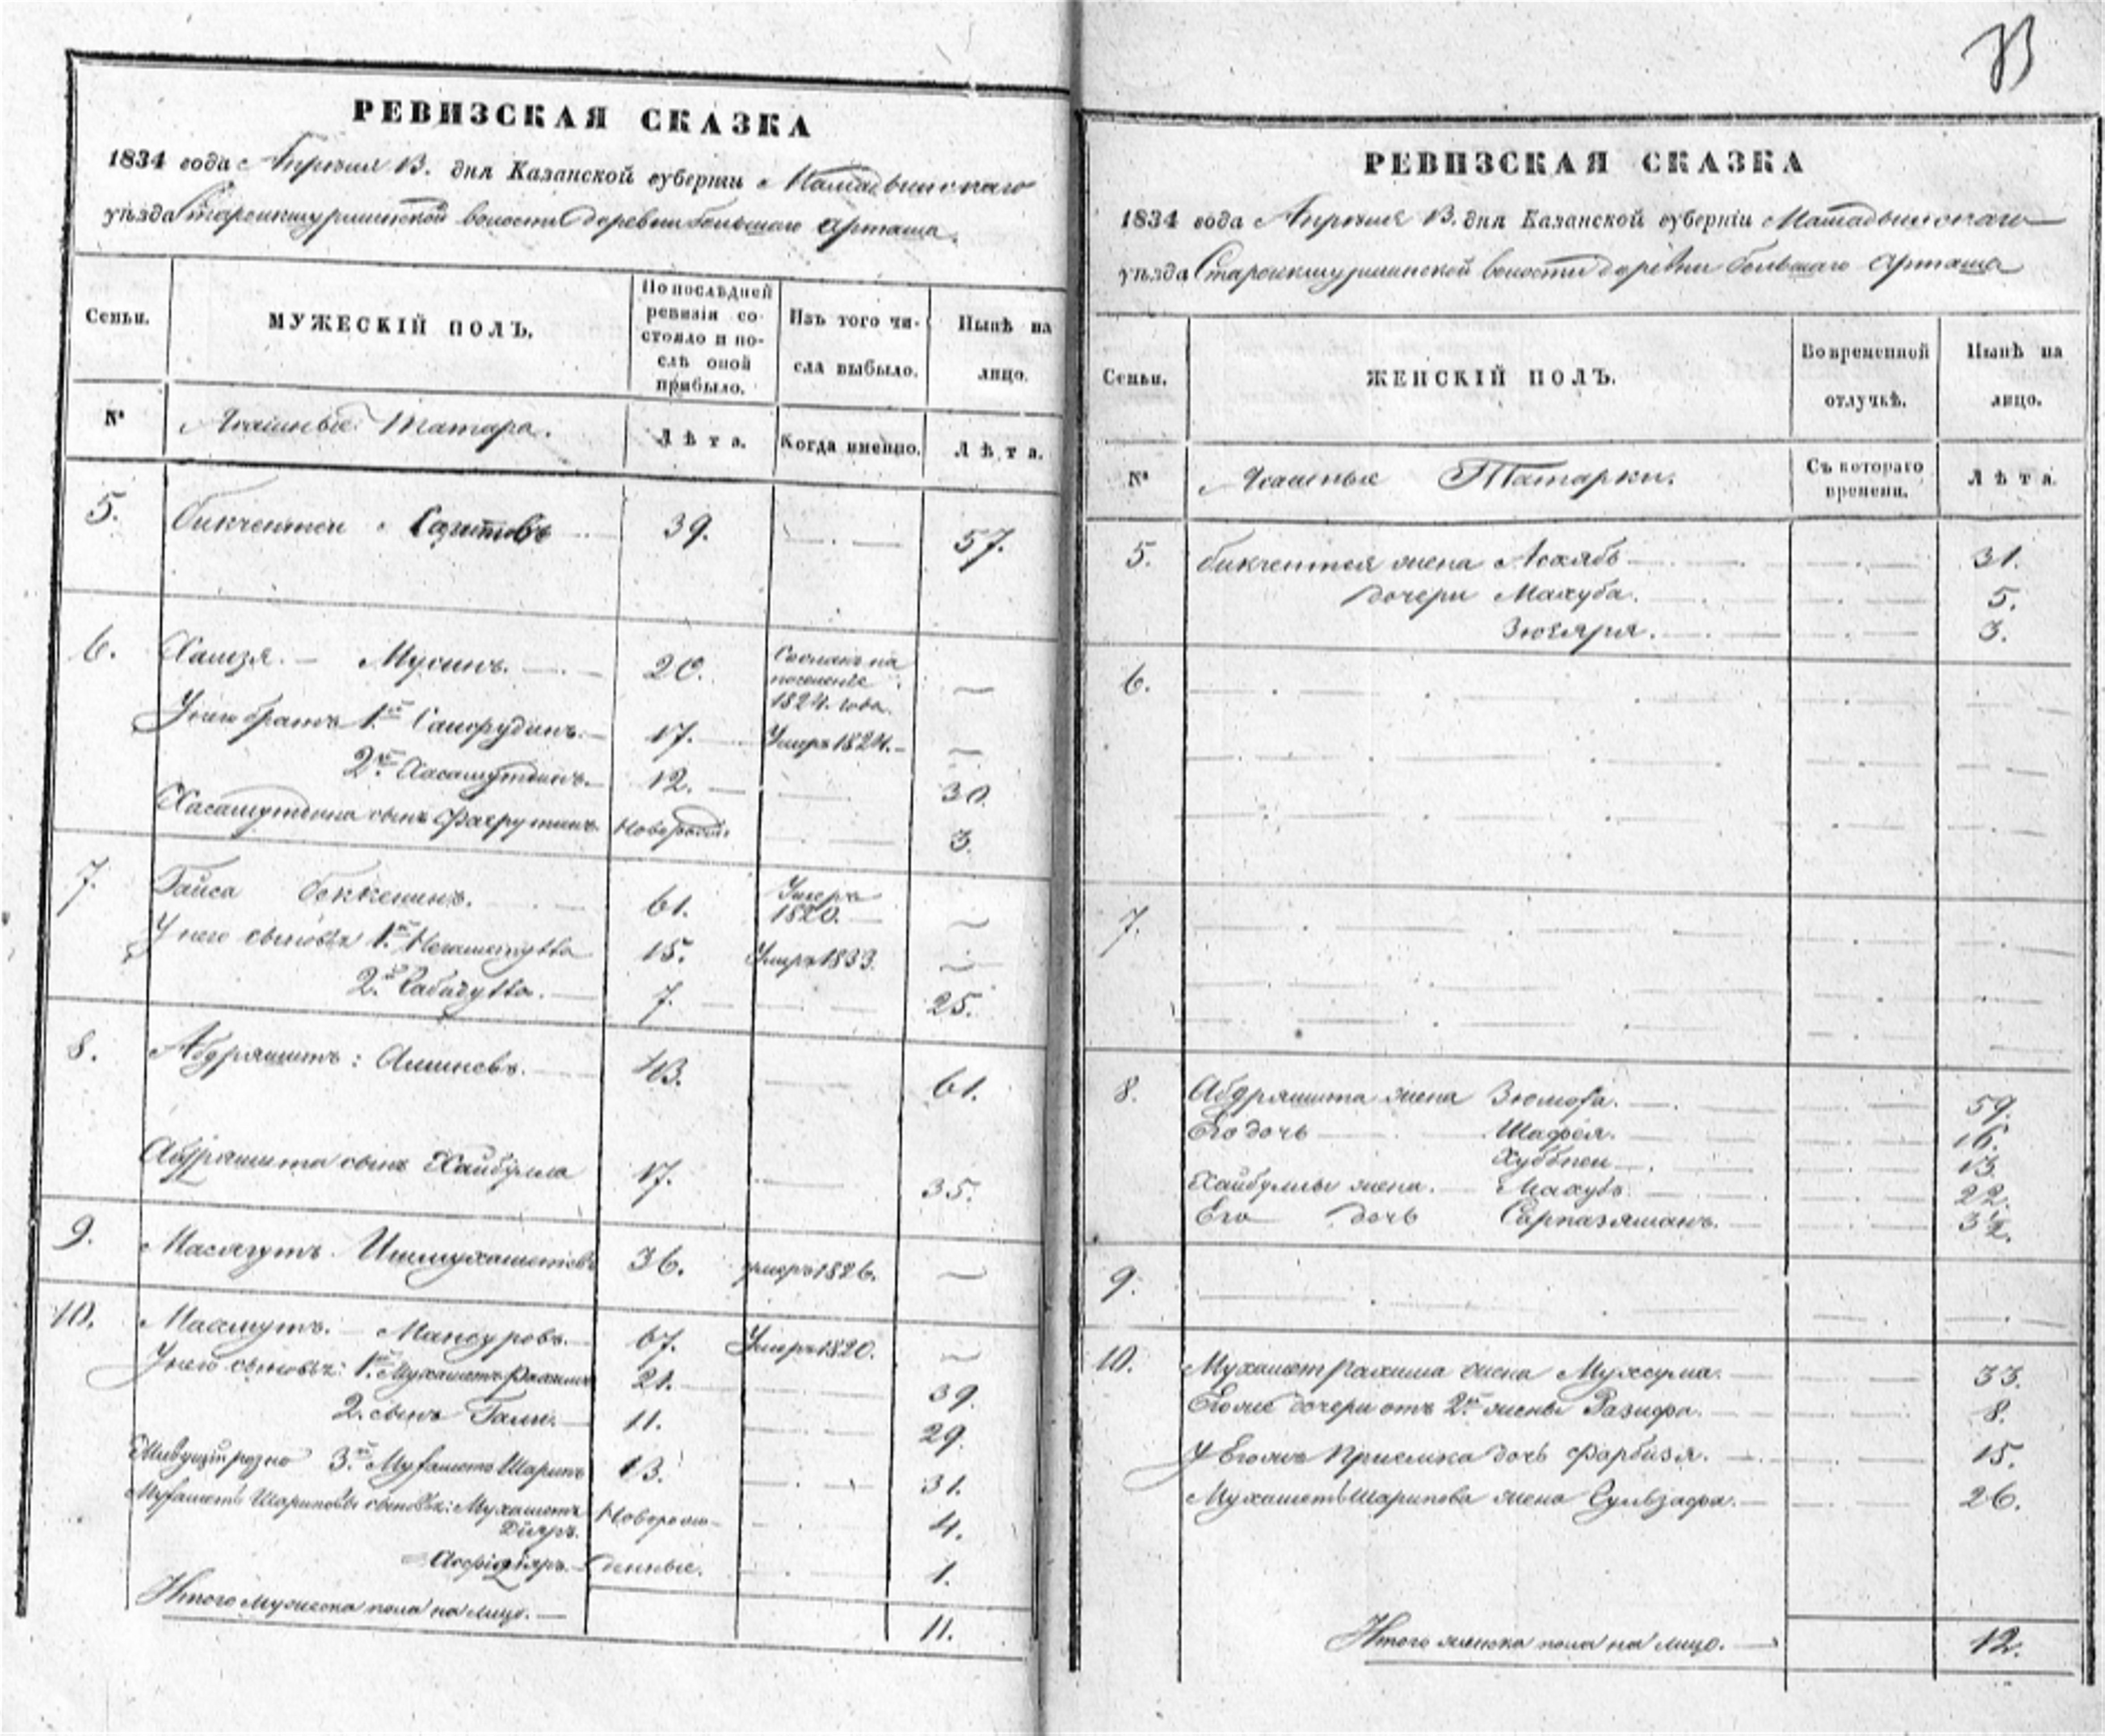 РЕВИЗСКАЯ СКАЗКА
1834 года Апреля 13. дня Казанской губернии Мамадышскаго
уѣзда Староикшурминской волости деревни большаго Арташа.
Сеньи.
МУЖЕСКІЙ ПОЛЪ.
По послѣдней ревизіи состояло и послѣ оной прибыло.
Изъ того числа выбыло.
Нынѣ на лицо.
№
Ясашные Татара.
Лѣта.
Когда именно.
Лѣта.
5. Бикчентеи Сагитовъ 39. 57.
6. Хамзя. Мусинъ. 20. Сосланъ на поселенiе 1824. года.
У него братъя 1й 17. Умеръ 1824.
2й Хасамутдинъ. 12. 30.
Хасамутдина сынъ Фахрутинъ 3.
7. Гайса Беккенинъ. 61. Умеръ 1820.
У него сыновья 1й 15. Умеръ 1833.
2й 7. 25.
8. Абдряшитъ: 43. 61.
Абдряшита сынъ Хайбулла 17. 35.
9. Масягутъ Ишмухаметовъ 36. умеръ 1826.
10. Мансуровъ. 67. Умеръ 1820.
У него сыновья: 1й Мухаметъ Рахимъ 21. 39.
2. сынъ Гали. 11. 29.
Живущiй розно 3й Мухаметъ Шарипъ 13. 31.
Мухаметъ Шариповы сыновья: Мухаметъ Новорож-
4.
денные. 1.
Итого мужеска пола на лицо. 11.
РЕВИЗСКАЯ СКАЗКА
1834 года Апреля 13. дня Казанской губерніи Мамадышскаго
уѣзда Староикшурминской волости деревни большаго Арташа
Сеньи.
ЖЕНСКІЙ ПОЛЪ.
Во временной отлучкѣ.
Нынѣ на лицо.
№
Ясашные Татарки.
Съ котораго времени.
Лѣта.
5. Бикчентея жена 31.
дочери Махуба. 5.
3.
6.
7.
8. Абдряшита жена 59.
Его дочь 16.
13.
Хайбуллы жена. Махубъ 22.
Его дочь 3½.
9.
10. Мухаметъ Рахима жена 33.
Егоже дочери отъ 2й жены Разифа. 8.
У Егоже Приемжа дочь Фарбизя. 15.
Мухаметъ Шарипова жена Гульзафа. 26.
Итого женска пола на лицо. 12.